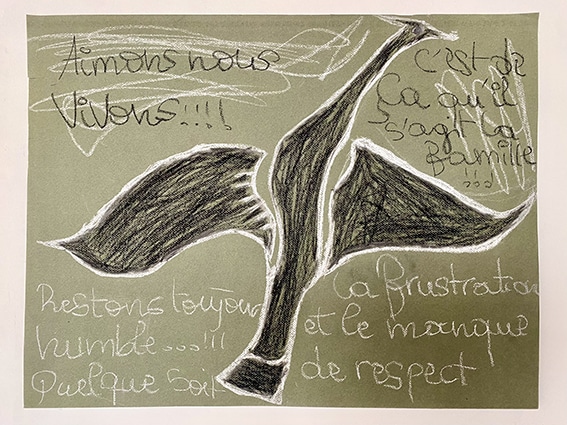 Aimons nous
Vivons!!!!
C'est de
Ca qu'il
s'agit La
famille
!!!
Restons toujour
humble...!!!
Quelque Soit
La frustration
et le manque
de respect